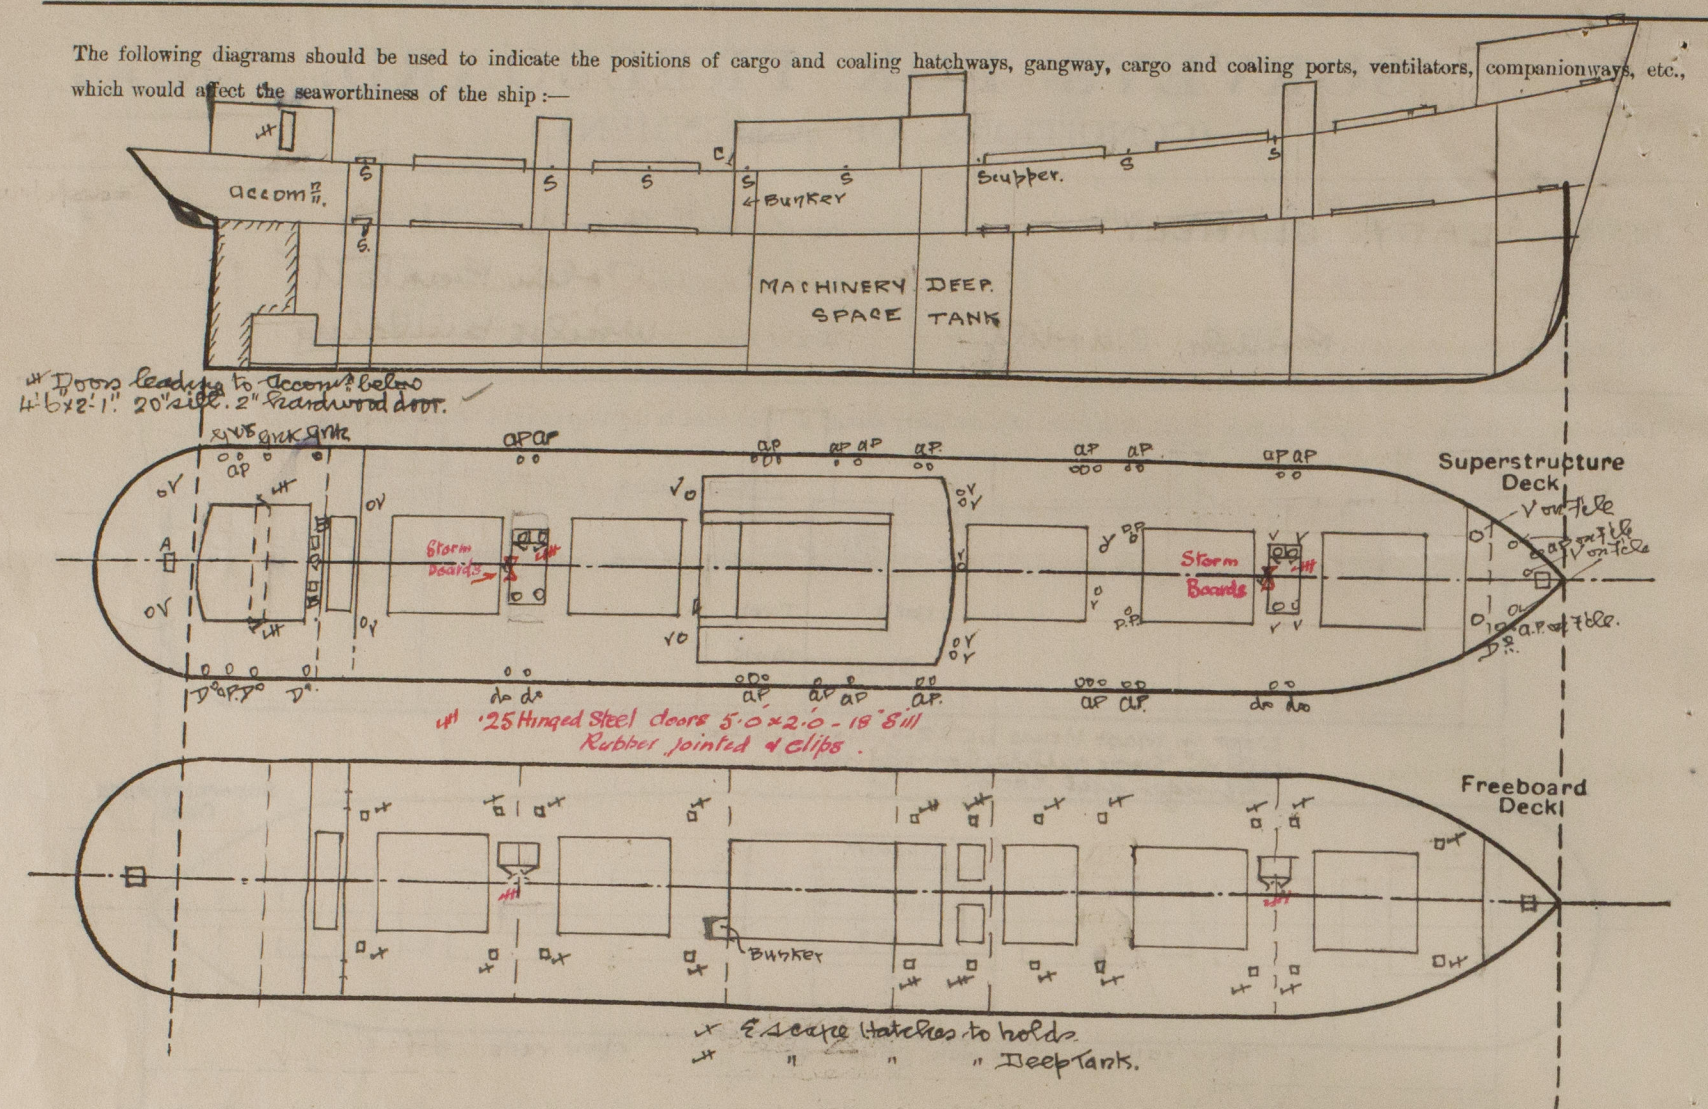 The following diagrams should be used to indicate the positions of cargo and coaling hatchways, gangway, cargo and coaling ports, ventilators, companionways, etc.,
which would affect the seaworthiness of the ship :—
accomn.
S
S
S
C
S
S
Scupper.
S
S
Bunker
S.
MACHINERY SPACE
DEEP. TANK
Doors leading to accomn. below
4'-6"x2'-1". 20" sill. 2" hardwood door.
ap
ap ap
ap
ap ap
ap.
ap
ap.
ap ap
Superstructure
Deck
V on Fcle
ap on Fcle
V on Fcle
OV
OV
V O
A
Storm
Boards
Storm
Boards
P.P.
OV
OV
V O
P.P.
a.P. on Fcle.
Do.
Do ap. Do
Do.
do do
ap
ap ap
ap.
ap ap.
do do
.25 Hinged Steel doors 5'.0" x 2'.0" - 18" Sill
Rubber jointed & Clips.
Freeboard
Deck
Bunker
Escape Hatches to holds.
" " " Deep Tank.